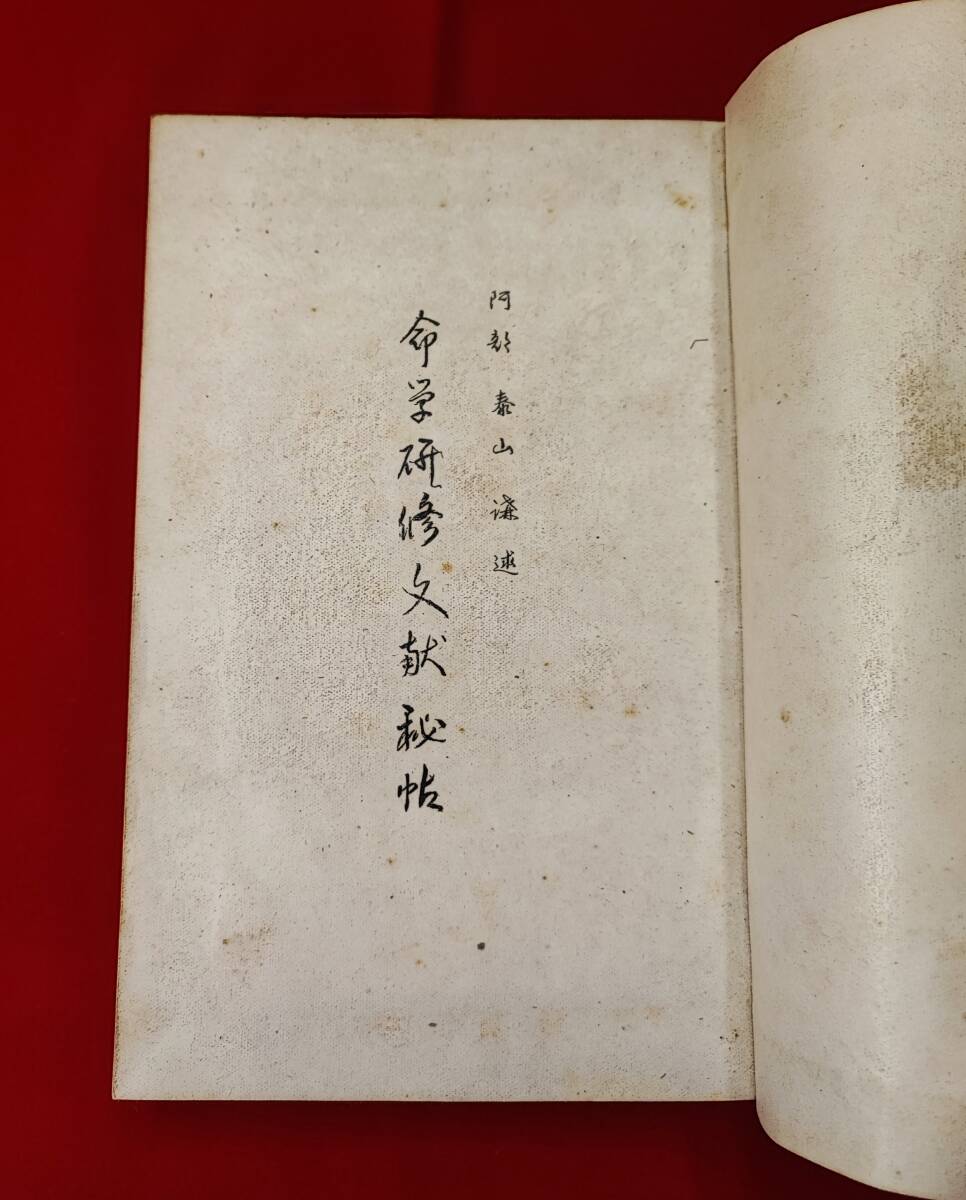 阿部泰山講述
命学研修文献秘帖